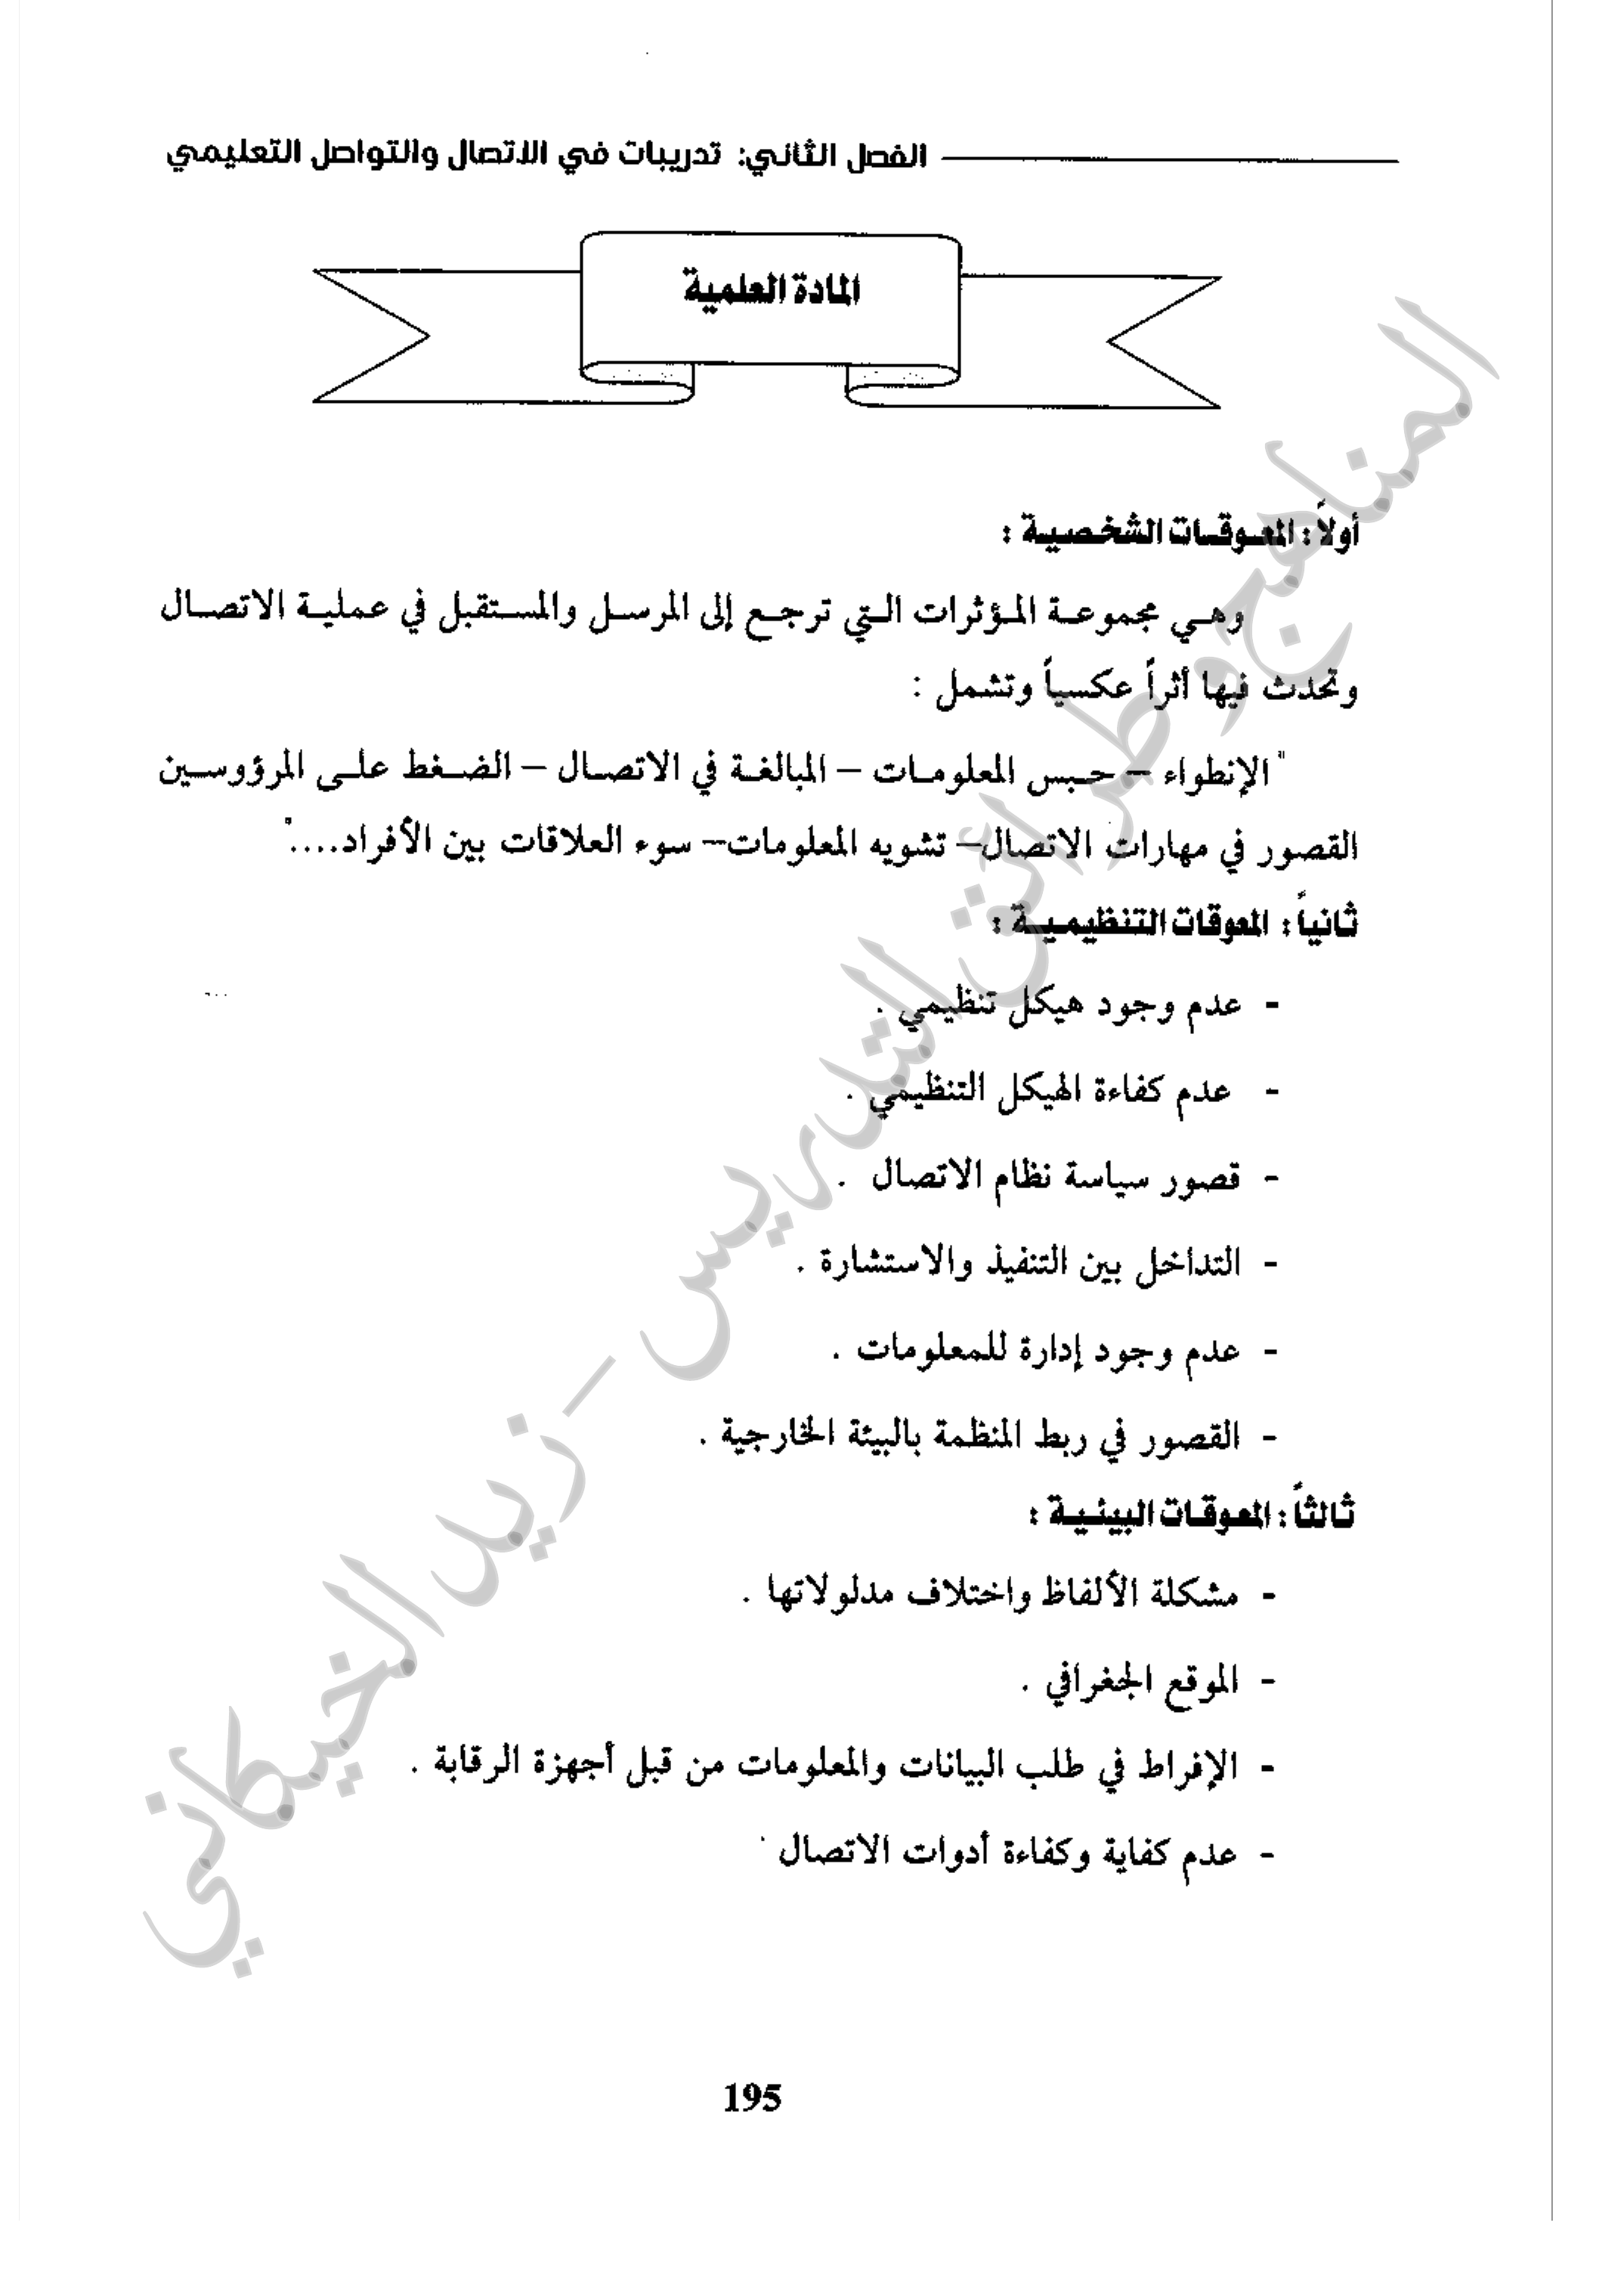 الفصل الثاني: تدريبات في الاتصال والتواصل التعليمي
المادة العلمية
أولاً : المعوقات الشخصية :
وهي مجموعة المؤثرات التي ترجع إلى المرسل والمستقبل في عملية الاتصال
وتحدث فيها أثراً عكسياً وتشمل :
" الإنطواء – حبس المعلومات – المبالغة في الاتصال – الضغط على المرؤوسين
القصور في مهارات الاتصال– تشويه المعلومات– سوء العلاقات بين الأفراد...."
ثانياً : المعوقات التنظيمية :
- عدم وجود هيكل تنظيمي .
- عدم كفاءة الهيكل التنظيمي .
- قصور سياسة نظام الاتصال .
- التداخل بين التنفيذ والاستشارة .
- عدم وجود إدارة للمعلومات .
- القصور في ربط المنظمة بالبيئة الخارجية .
ثالثاً : المعوقات البيئية :
- مشكلة الألفاظ واختلاف مدلولاتها .
- الموقع الجغرافي .
- الإفراط في طلب البيانات والمعلومات من قبل أجهزة الرقابة .
- عدم كفاية وكفاءة أدوات الاتصال .
195
المناهج وطرائق التدريس – زيد الخيكاني